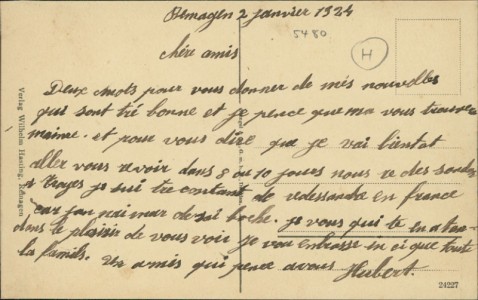 Remagen 2 janvier 1924
5480
H
chère amis
Deux mots pour vous donner de més nouvelles
qui sont tré bonne et je pence que ma vous trouve
maime. et pour vous dire que je vai bientat
aller vous avoir dans 8 ou 10 jours nous re des sandon
a Troyes je sui tré contant de redessandre en france
car jan nai mar de sai boche. je vous qui te en a tan
dans te plaisir de vous voir je vou enbrasse in ci que toute
la famils. un amis qui pence avous Hubert.
Verlag Wilhelm Hassing, Remagen
24227